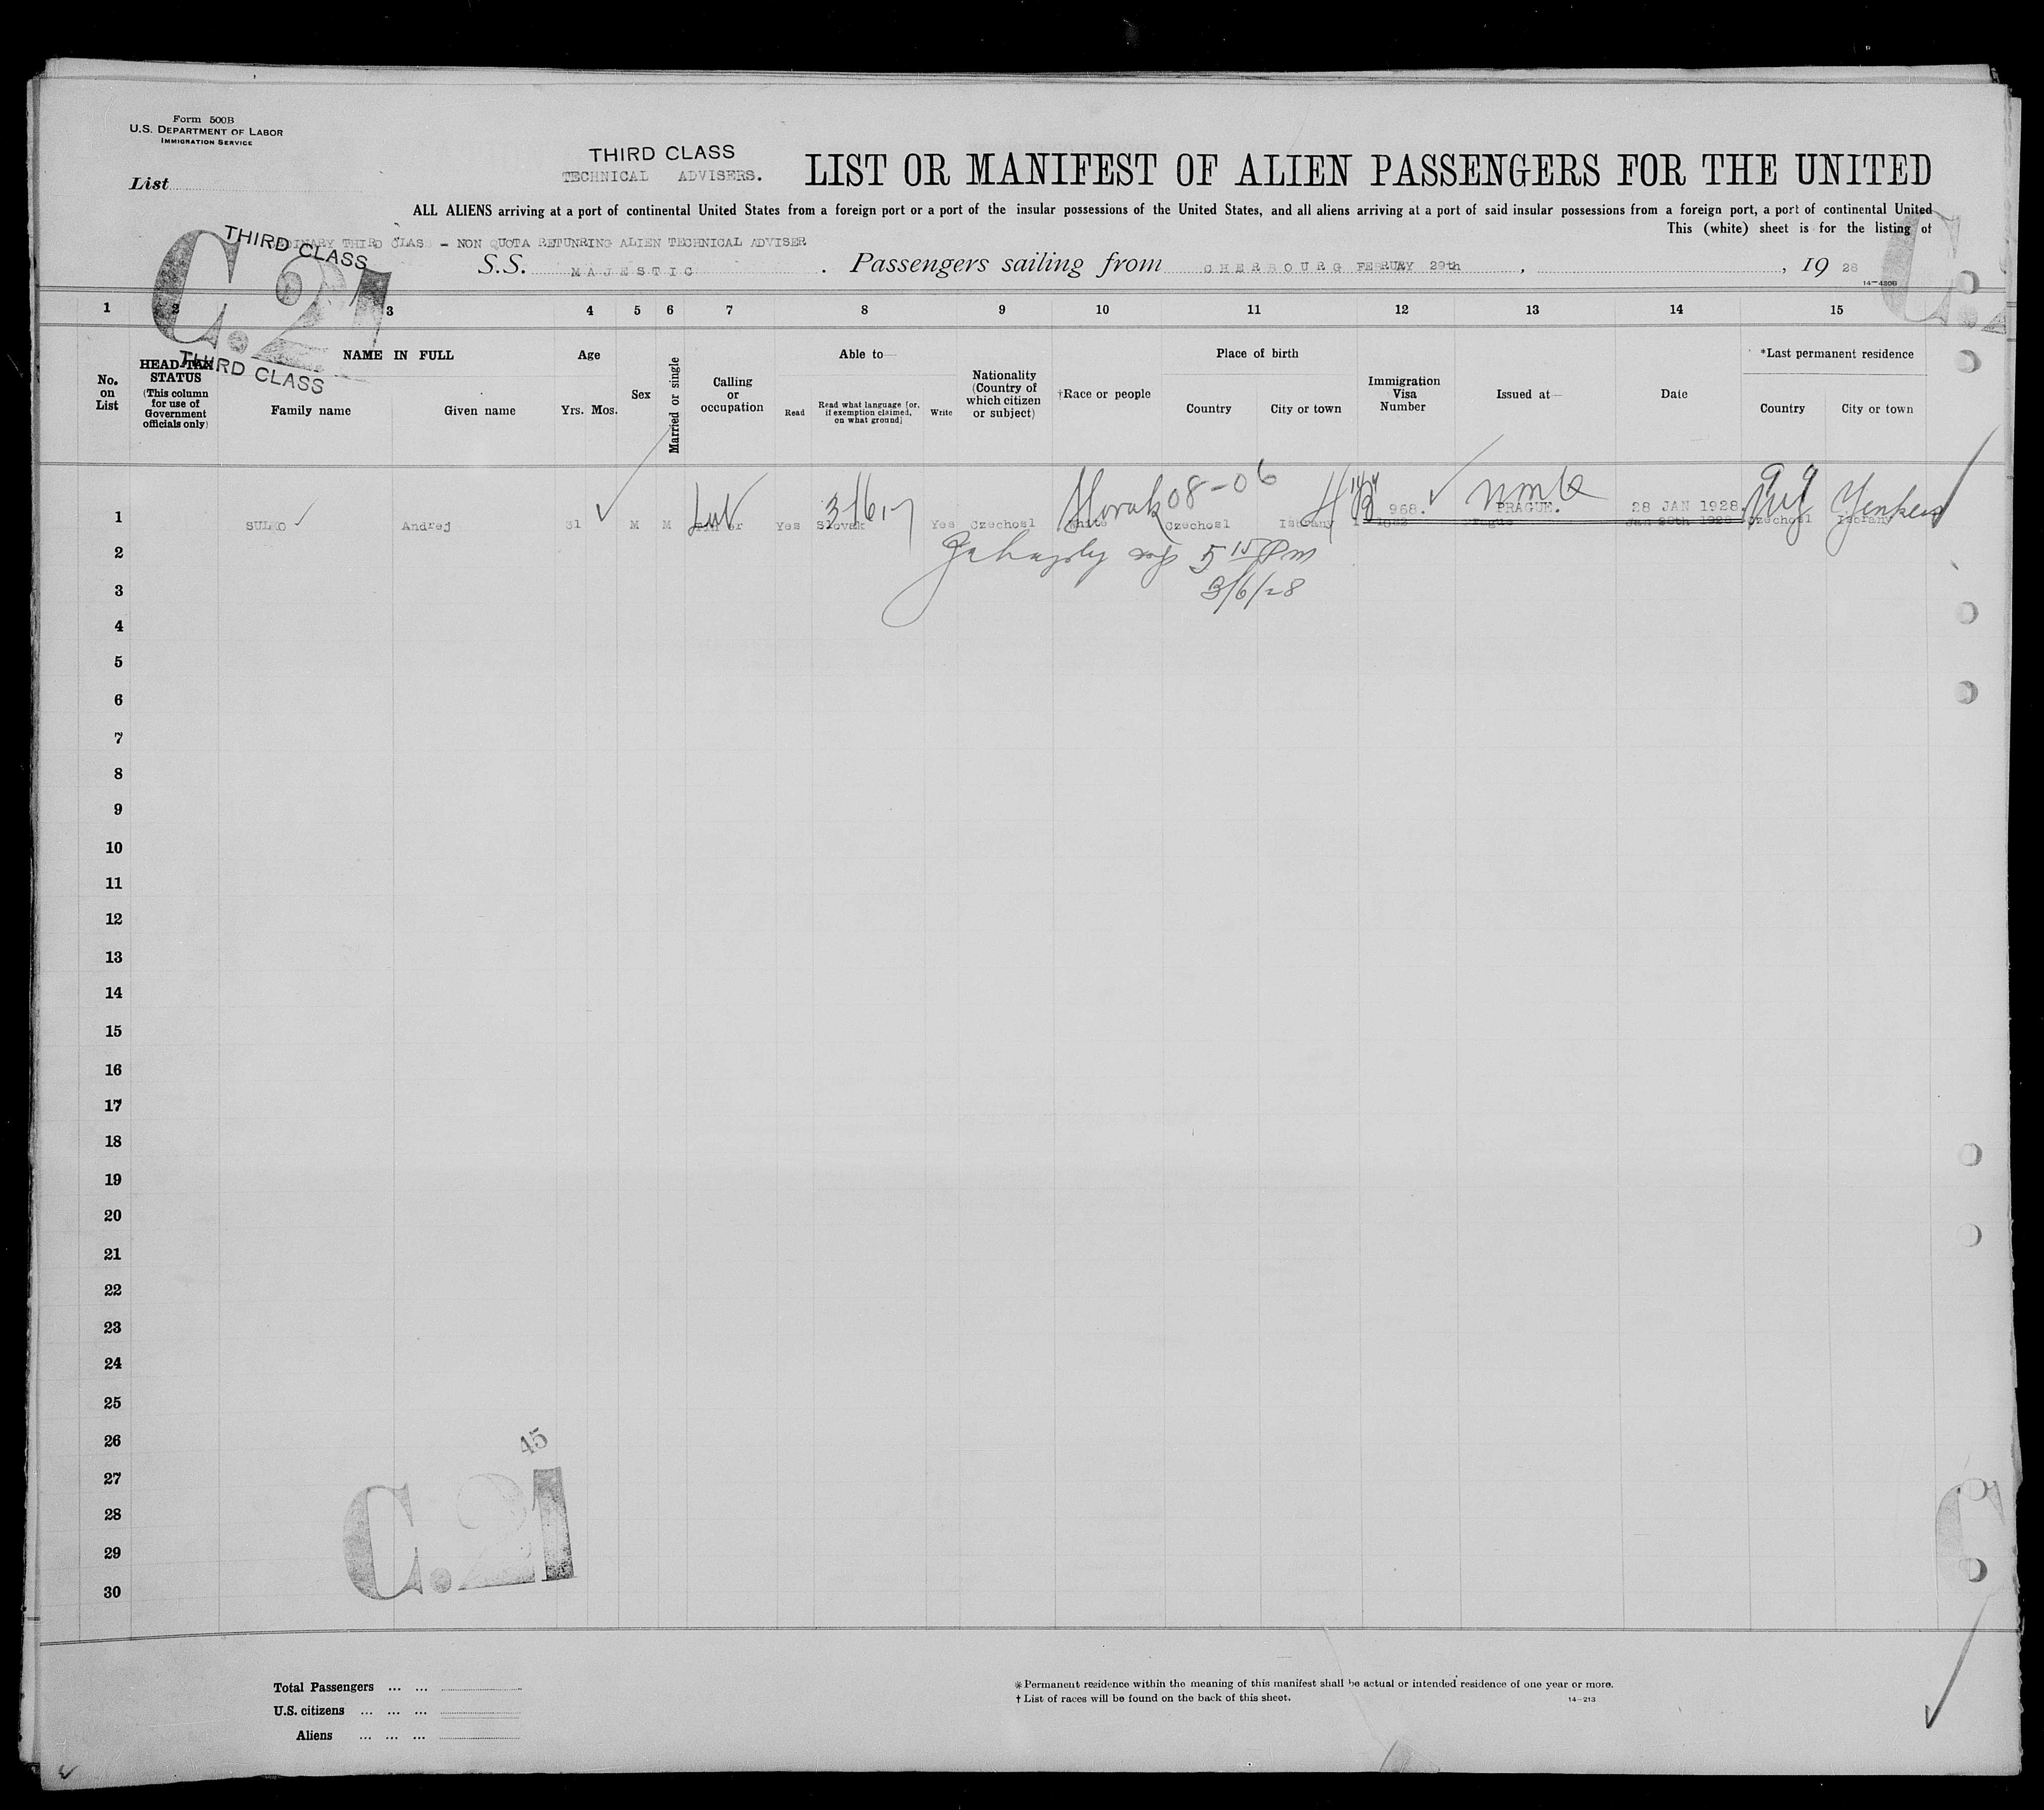 Form 500B
U.S. DEPARTMENT OF LABOR
IMMIGRATION SERVICE
List
THIRD CLASS
TECHNICAL ADVISERS.
LIST OR MANIFEST OF ALIEN PASSENGERS FOR THE UNITED
ALL ALIENS arriving at a port of continental United States from a foreign port or a port of the insular possessions of the United States, and all aliens arriving at a port of said insular possessions from a foreign port, a port of continental United
This (white) sheet is for the listing of
THIRD CLASS
THIRD CLASS - NON QUOTA RETUNRING ALIEN TECHNICAL ADVISER
C.21
S.S. MAJESTIC. Passengers sailing from CHERBOURG FEBRURY 29th, , 19 28
14-430B
1 2 3 4 5 6 7 8 9 10 11 12 13 14 15
THIRD CLASS
No. on List
HEAD-TAX STATUS (This column for use of Government officials only)
NAME IN FULL
Family name Given name
Age
Yrs. Mos.
Sex
Married or single
Calling or occupation
Able to—
Read
Read what language [or, if exemption claimed, on what ground]
Write
Nationality (Country of which citizen or subject)
†Race or people
Place of birth
Country City or town
Immigration Visa Number
Issued at—
Date
*Last permanent residence
Country City or town
1 SULKO Andrej 31 M M Yes Slovak Yes Czechosl White Czechosl Isbrany 968. PRAGUE. 28 JAN 1928. Czechosl Isbrany
Slovak 08-06
NY Yonkers
2
5 15 Pm
3 3/6/28
4
5
6
7
8
9
10
11
12
13
14
15
16
17
18
19
20
21
22
23
24
25
26
27
28
29
30
45
C.21
Total Passengers ... ...
U.S. citizens ... ... ...
Aliens ... ... ...
* Permanent residence within the meaning of this manifest shall be actual or intended residence of one year or more.
† List of races will be found on the back of this sheet.
14-213